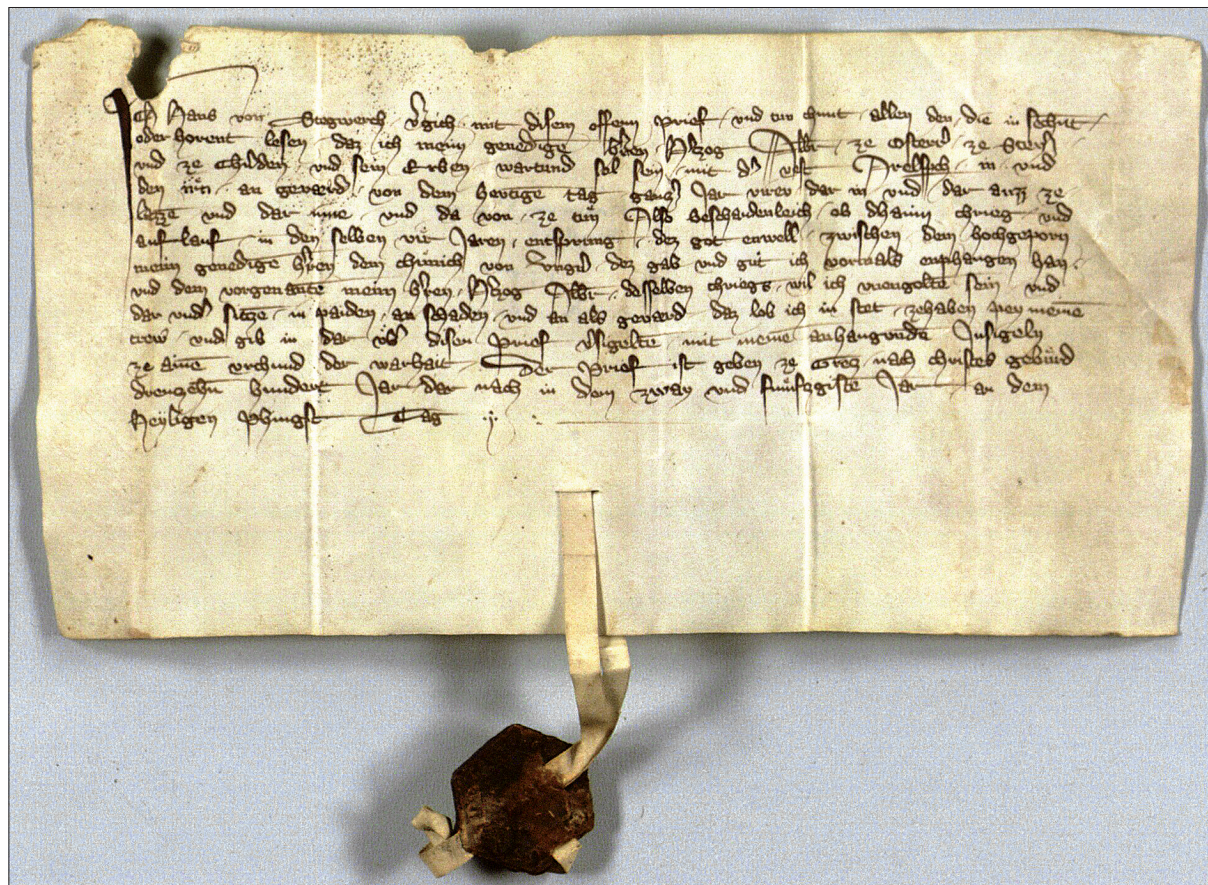 Ich Hans von Stegwerch v͛gich mit disem offenn prief und tun chunt allen den die in sehent
oder horent lesen daz ich meim genedigē h͛ren h͛tzog Albr ze Osterr͛ ze Steyr͛
vnd ze Chernden vnd sein Erben wartund sol sein mit d͛ vest in vnd
den an gevaerd von dem hevtigē tag gantzev Jar dar in vnd dar auzz ze
lazzē vnd dar inne vnd da von ze tun Also beschaidenleich ob dhainn chrieg vnd
auflauf in den selben vir Jaren entsprung dez got enwell zwischen dem hochgeporn
meim genedigē h͛ren dem chunich von Vnger͛ dez gab vnd gut ich vormals enphangen han
vnd dem vorgenantē meim h͛ren h͛tzog Albr desselben chriegs wil ich vnengoltē sein vnd
dar vnd͛ sitzē in paiden an schaden vnd an als gevaerd daz lob ich in stet zehaben pey meinē
trew vnd gib in dar vb͛ disen prief v͛sigeltē mit meinē anhangundē Insigeln
ze ainē vrchund der warhait Der prief ist geben ze Gretz nach christes gebuͤrd
dreuzehn hundert Jar dar nach in dem zway vnd fuͤnfzgistē Jar an dem
Heyligen phingst Tag